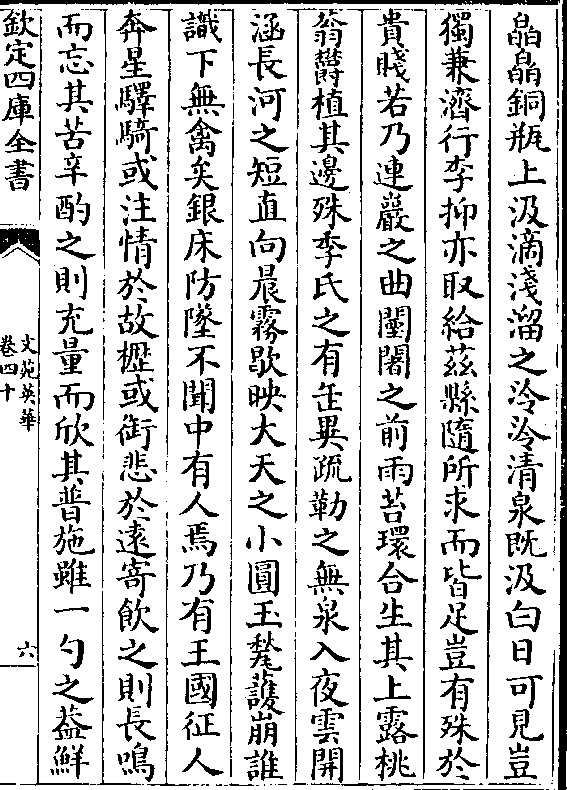 皛皛銅瓶上汲滴淺溜之泠泠清泉既汲白日可見豈
獨兼濟行李抑亦取給茲縣隨所求而皆足豈有殊於
貴賤若乃連巖之曲闉闍之前雨苔環合生其上露桃
蓊鬱植其邊殊李氏之有缶異疏勒之無泉入夜雲開
涵長河之短直向晨霧歇映大天之小圓玉甃護崩誰
識下無禽矣銀床防墜不聞中有人焉乃有王國征人
奔星驛騎或注情於故櫪或銜悲於逺寄飲之則長鳴
而忘其苦辛酌之則充量而欣其普施雖一勺之益鮮
欽定四庫全書
文苑英華
卷四十
六